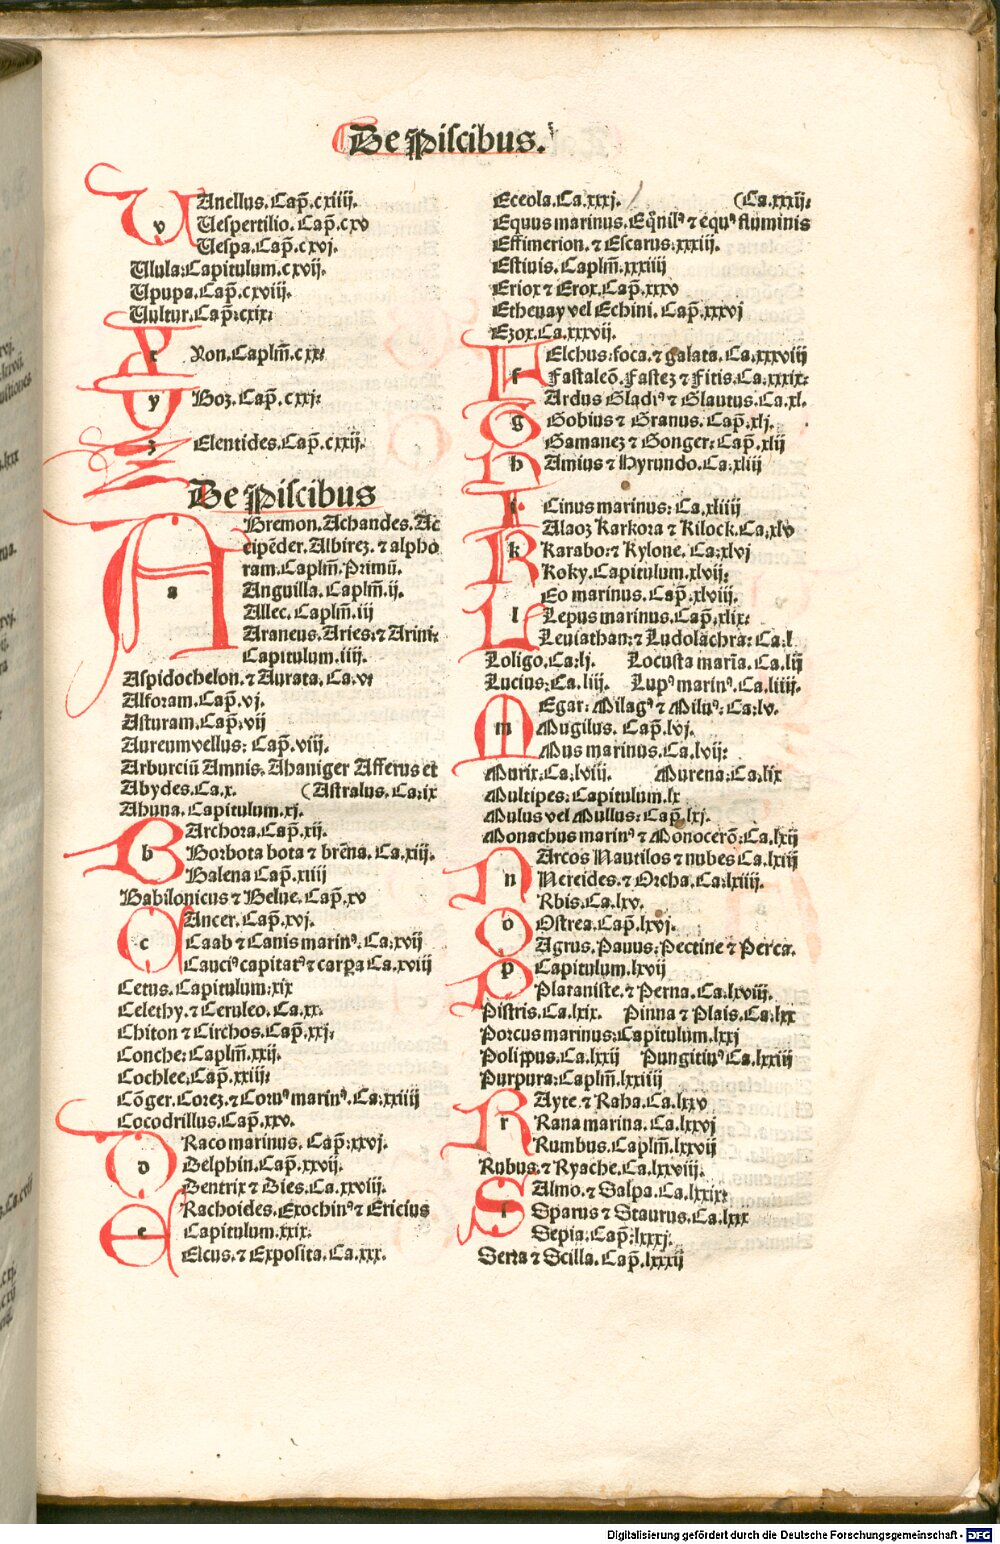 De Piscibus.
VAnellus. Cap̄. cxiiij.
Vespertilio. Cap̄. cxv
Vespa. Cap̄. cxvj.
Vlula: Capitulum. cxvij.
Vpupa. Cap̄. cxviij.
Vultur. Cap̄: cxix:
Xon. Caplm̄. cxx:
YBoz. Cap̄. cxxj:
ZElentides. Cap̄. cxxij.
De Piscibus
ABremon. Achandes. Ac
cipēder. Albirez. ⁊ alpho
ram. Caplm̄. Primū.
Anguilla. Caplm̄. ij.
Allec. Caplm̄. iij
Araneus. Aries. ⁊ Arini:
Capitulum. iiij.
Aspidochelon. ⁊ Aurata. Ca. v:
Alforam. Cap̄. vj.
Asturam. Cap̄. vij
Aureumvellus: Cap̄. viij.
Arburciū Amnis. Abaniger Afferus et
Abydes. Ca. x. (Astralus. Ca: ix
Abuna. Capitulum. xj.
BArchora. Cap̄. xij.
Borbota bota ⁊ brēna. Ca. xiij.
Balena Cap̄. xiiij
Babilonicus ⁊ Belue. Cap̄. xv
CAncer. Cap̄. xvj.
Caab ⁊ Canis marinꝰ. Ca. xvij
Cauciꝰ capitatꝰ ⁊ carpa Ca. xviij
Cetus. Capitulum: xix
Celethy. ⁊ Ceruleo. Ca. xx.
Chiton ⁊ Circhos. Cap̄. xxj:
Conche: Caplm̄. xxij.
Cochlee. Cap̄. xxiij:
Cōger. Corez. ⁊ Cornꝰ marinꝰ. Ca: xxiiij
Cocodrillus. Cap̄. xxv.
DRaco marinus. Cap̄: xxvj.
Delphin. Cap̄. xxvij.
Dentrix ⁊ Dies. Ca. xxviij.
ERachoides. Exochinꝰ ⁊ Ericius
Capitulum. xxix.
Elcus. ⁊ Exposita. Ca. xxx.
Eceola. Ca. xxxj. (Ca. xxxij:
Equus marinus. Eq̄nilꝰ ⁊ equꝰ fluminis
Effimerion. ⁊ Escarus: xxxiij.
Estiuis. Caplm̄. xxxiiij
Eriox ⁊ Erox. Cap̄. xxxv
Ethenay vel Echini. Cap̄. xxxvj
Ezox. Ca. xxxvij.
FElchus: foca. ⁊ galata. Ca. xxxviij
Fastaleō. Fastez ⁊ Fitis. Ca: xxxix:
GArdus Gladiꝰ ⁊ Glautus. Ca. xl.
Gobius ⁊ Granus. Cap̄. xlj.
Gamanez ⁊ Gonger: Cap̄. xlij
HAmius ⁊ Hyrundo. Ca: xliij
ICinus marinus: Ca. xliiij
KAlaoz Karkora ⁊ Kilock. Ca: xlv
Karabo: ⁊ Kylone. Ca: xlvj
Koky. Capitulum. xlvij:
LEo marinus. Cap̄. xlviij.
Lepus marinus. Cap̄. xlix:
Leuiathan: ⁊ Ludolachra: Ca: l
Loligo. Ca: lj. Locusta marīa. Ca. lij
Lucius: Ca. liij. Lupꝰ marinꝰ. Ca. liiij.
MEgar: Milagꝰ ⁊ Miluꝰ: Ca: lv.
Mugilus. Cap̄. lvj.
Mus marinus. Ca. lvij:
Murix: Ca: lviij. Murena: Ca: lix
Multipes: Capitulum. lx
Mulus vel Mullus: Cap̄. lxj.
Monachus marinꝰ ⁊ Monocerō: Ca: lxij
NArcos Nautilos ⁊ nubes Ca. lxiij
Nereides. ⁊ Orcha. Ca: lxiiij.
ORbis. Ca. lxv.
Ostrea. Cap̄. lxvj.
PAgrus. Pauus: Pectine ⁊ Perca.
Capitulum. lxvij
Plataniste. ⁊ Perna. Ca: lxviij.
Pistris. Ca. lxix. Pinna ⁊ Plais. Ca: lxx
Porcus marinus: Capitulum. lxxj
Polippus. Ca. lxxij Pungitiuꝰ Ca. lxxiij
Purpura: Caplm̄. lxxiiij
RAyte. ⁊ Raba. Ca. lxxv
Rana marina. Ca. lxxvj
Rumbus. Caplm̄. lxxvij
Rubus. ⁊ Ryache. Ca. lxxviij.
SAlmo. ⁊ Salpa. Ca. lxxix:
Sparus ⁊ Staurus. Ca. lxxx
Sepia: Cap̄: lxxxj.
Serra ⁊ Scilla. Cap̄. lxxxij
Digitalisierung gefördert durch die Deutsche Forschungsgemeinschaft - DFG